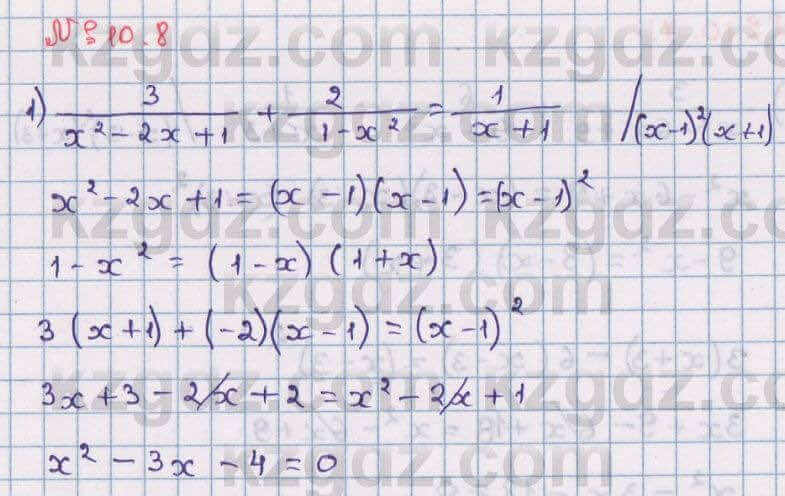 № 10.8
1) 3/(x² - 2x + 1) + 2/(1 - x²) = 1/(x + 1) /(x-1)²(x+1)
x² - 2x + 1 = (x - 1)(x - 1) = (x - 1)²
1 - x² = (1 - x) (1 + x)
3 (x + 1) + (-2)(x - 1) = (x - 1)²
3x + 3 - 2x + 2 = x² - 2x + 1
x² - 3x - 4 = 0
kzgdz.com